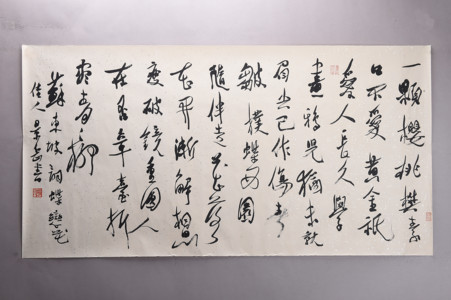 一顆櫻桃樊素
口不愛黃金祇
愛人長久學
畫鴉兒猶未就
眉尖已作傷春
皺撲蝶西園
隨伴走花落
花開漸解相思
瘦破鏡重圓人
在否章臺折
盡青青柳
蘇東坡詞蝶戀花
佳人 書